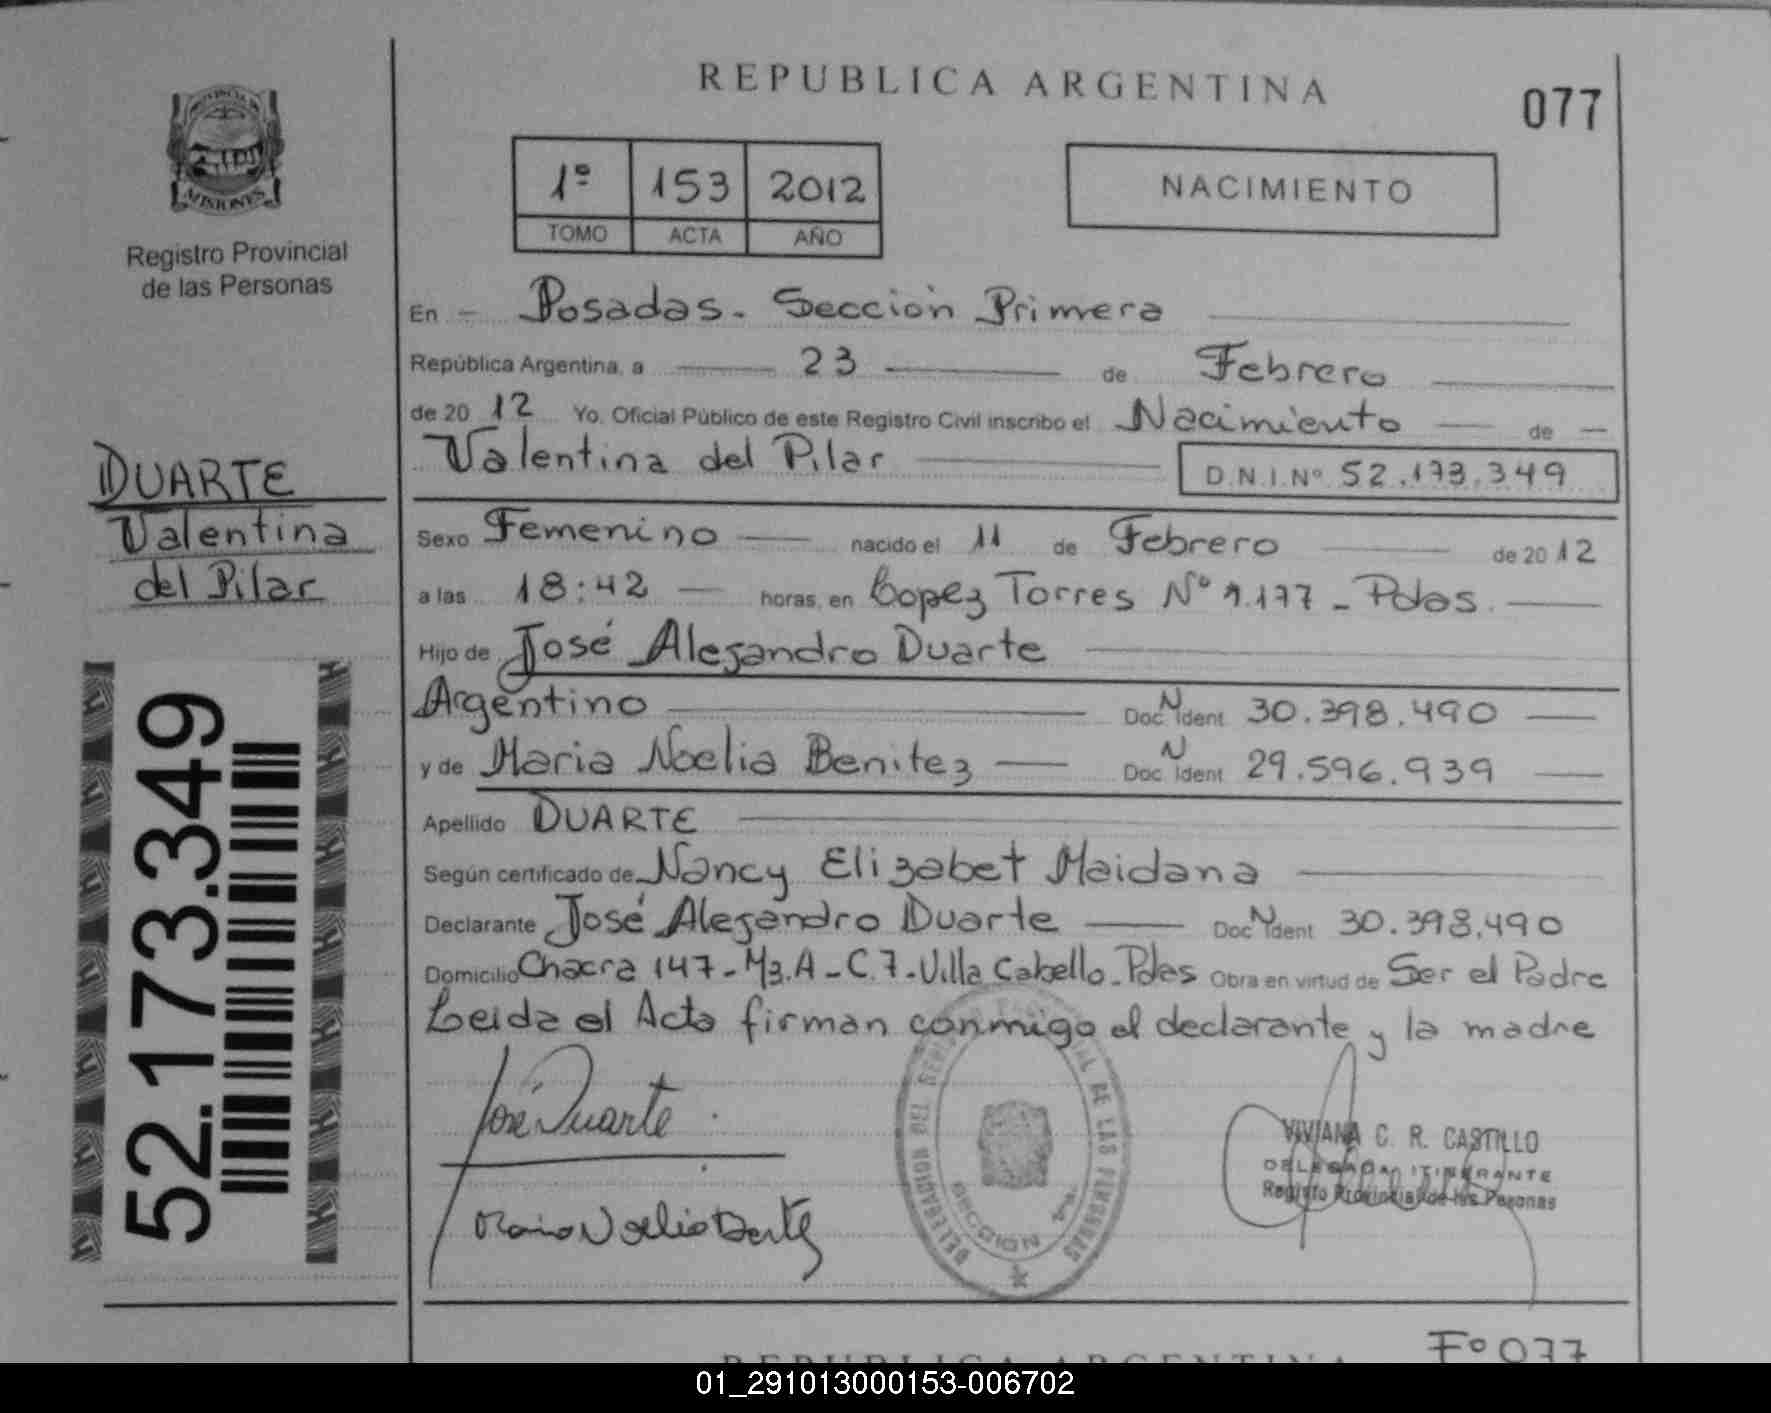 REPUBLICA ARGENTINA
077
PROVINCIA DE
MISIONES
Registro Provincial
de las Personas
1º 153 2012
TOMO ACTA AÑO
NACIMIENTO
En Posadas. Sección Primera
República Argentina, a 23 de Febrero
de 2012 Yo, Oficial Público de este Registro Civil inscribo el Nacimiento de
Valentina del Pilar D.N.I.Nº 52.173.349
DUARTE
Valentina
del Pilar
Sexo Femenino nacido el 11 de Febrero de 2012
a las 18:42 horas, en Lopez Torres Nº 1.177 - Pdas.
Hijo de José Alejandro Duarte
Argentino Doc. N Ident 30.398.490
y de Maria Noelia Benitez Doc. N Ident 29.596.939
Apellido DUARTE
Según certificado de Nancy Elizabet Maidana
Declarante José Alejandro Duarte Doc. N Ident 30.398.490
Domicilio Chacra 147 - Mz. A - C. 7 - Villa Cabello - Pdas Obra en virtud de Ser el Padre
Leida el Acta firman conmigo el declarante y la madre
52.173.349
José Duarte
DELEGACION DEL REGISTRO PROVINCIAL DE LAS PERSONAS
SECCION 1ra.
VIVIANA C. R. CASTILLO
DELEGADA ITINERANTE
Registro Provincial de las Personas
Maria Noelia Benitez
Fº 077
REPUBLICA ARGENTINA
01_291013000153-006702